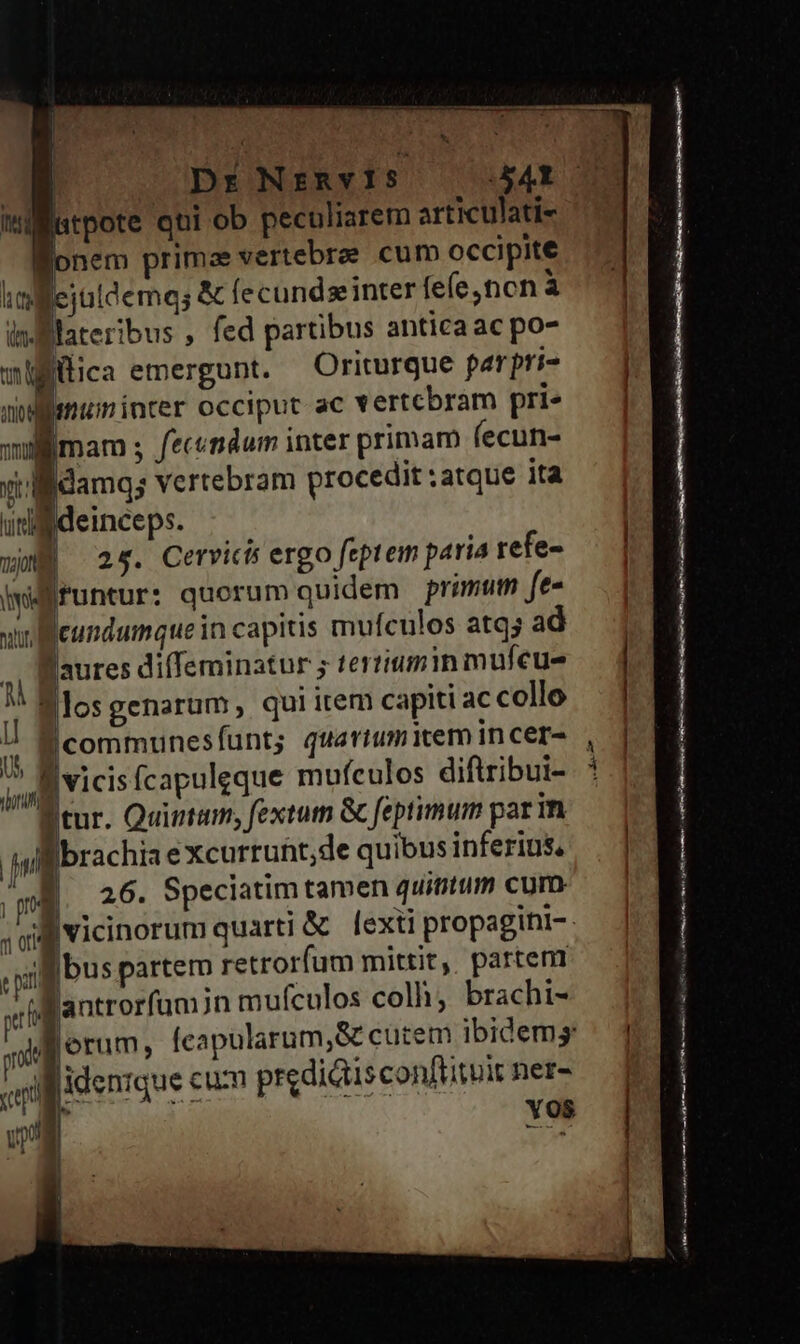 DE NERVIS 541
utpote qui ob peculiarem articulati-
onem primæ vertebræ cum occipite
ejuſdemq; & ſecundæ inter ſeſe, non à
lateribus, ſed partibus antica ac po-
ſtica emergunt. Oriturque par pri-
mum inter occiput ac vertebram pri-
mam; ſecundum inter primam ſecun-
damq; vertebram procedit: atque ita
deinceps.
25. Cervicis ergo ſeptem paria refe-
runtur: quorum quidem primum ſe-
cundumque in capitis muſculos atq; ad
aures diſſeminatur; tertium in muſcu-
los genarum, qui item capiti ac collo
communes ſunt; quartum item in cer-
vicis ſcapulęque muſculos diſtribui-
tur. Quintum, ſextum & ſeptimum par in
brachia excurrunt, de quibus inferius.
26. Speciatim tamen quintum cum
vicinorum quarti & ſexti propagini-
bus partem retrorſum mittit, partem
antrorſum in muſculos colli, brachi-
orum, ſcapularum, & cutem ibidem;
idemque cum prędictis conſtituit ner-
vos